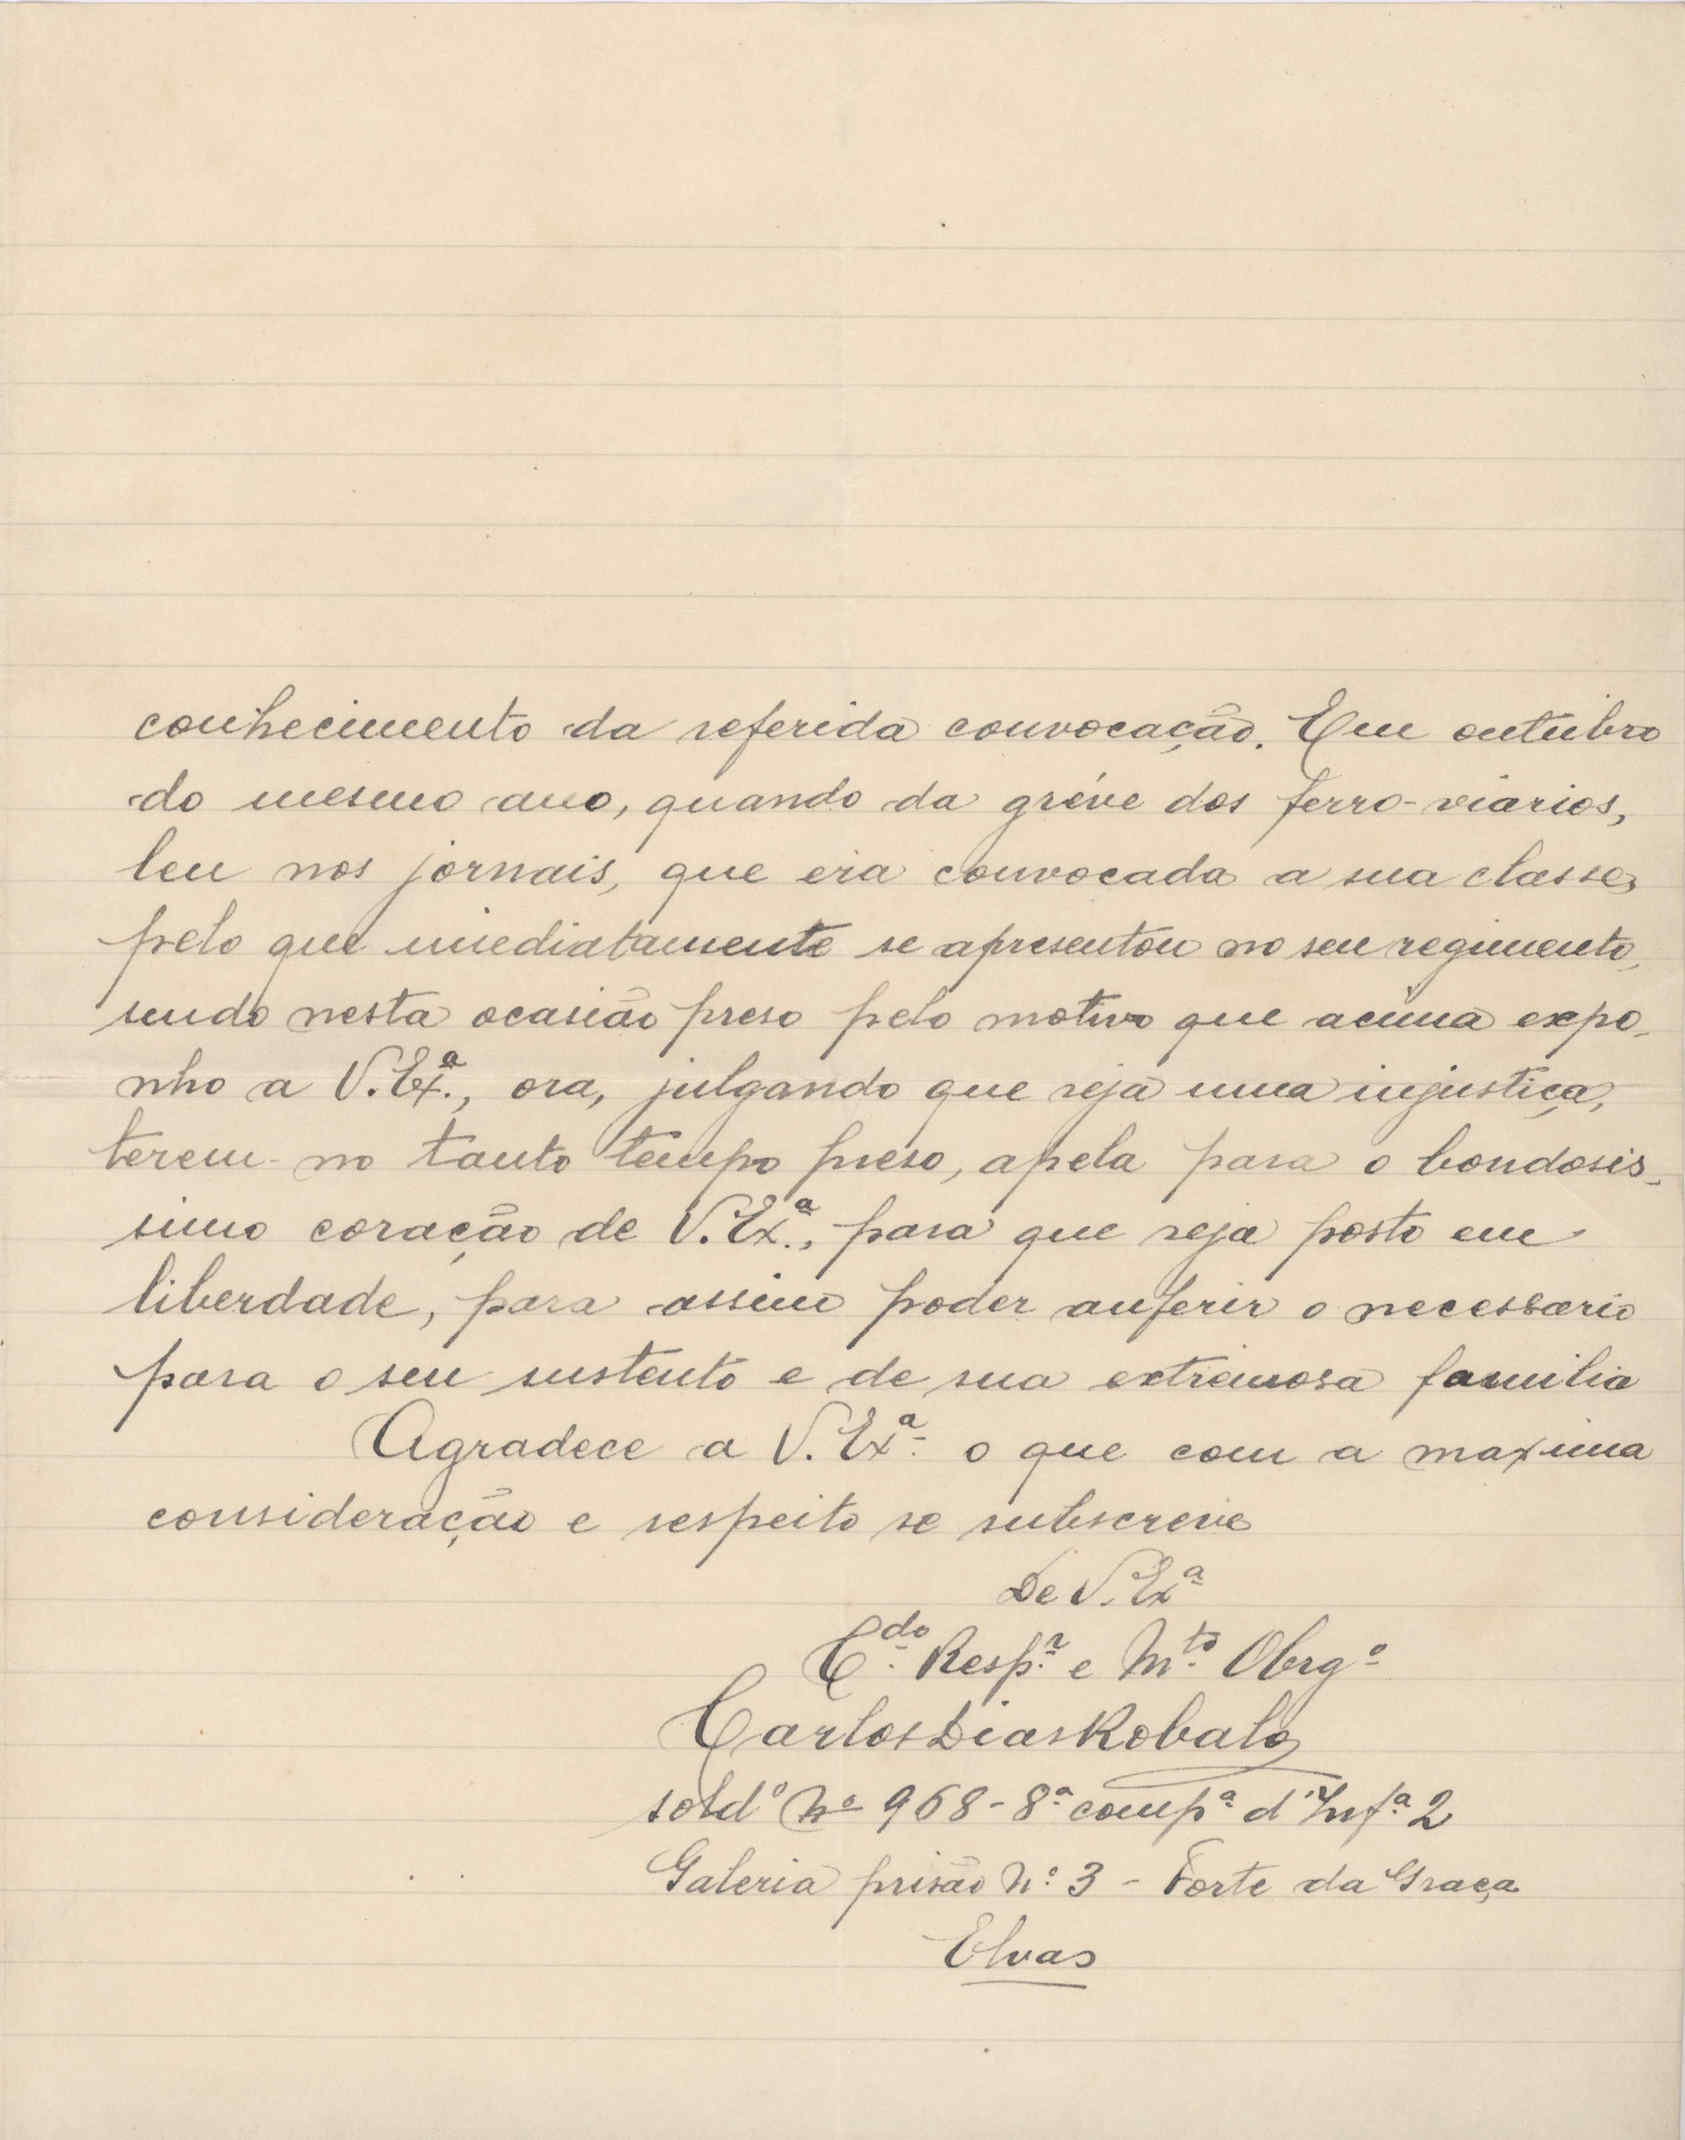 conhecimento da referida convocação. Em outubro
do mesmo ano, quando da gréve dos ferro-viarios,
leu nos jornais, que era convocada a sua classe,
pelo que imediatamente se apresentou no seu regimento,
sendo nesta ocasião preso pelo motivo que acima expo-
nho a V. Exª., ora, julgando que seja uma injustiça,
terem-no tanto tempo preso, apela para o bondosis-
simo coração de V. Exª., para que seja posto em
liberdade, para assim poder auferir o necessario
para o seu sustento e de sua extremosa familia
Agradece a V. Exª. o que com a maxima
consideração e respeito se subscreve
De V. Exª
Cdo. Respr. e Mto. Obrgº
Carlos Dias Robalo
soldº Nº 968 - 8ª compª d'Infª 2
Galeria prisão Nº 3 - Forte da Graça
Elvas